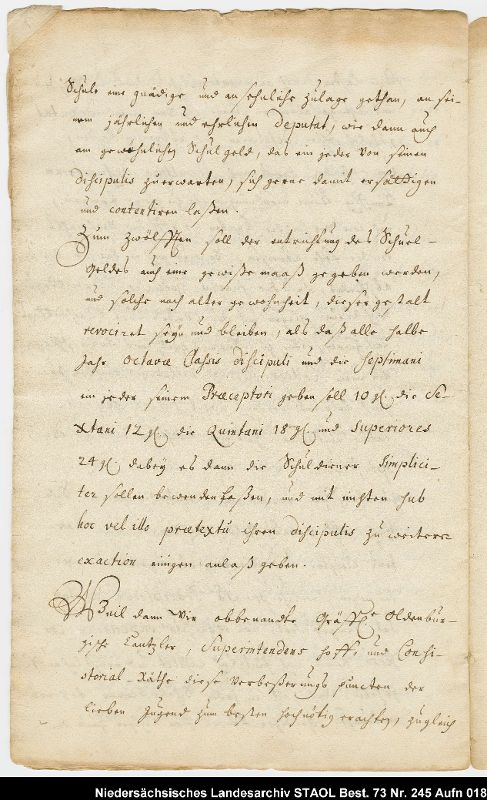 Schule eine gnädige und ansehnliche zulage gethan, an sei-
nem jährlichen und ehrlichen Deputat, wie dann auch
am gewöhnlichen Schulgeld, das ein jeder von seinen
Discipulis zuerwarten, sich gerne damit ersättigen
und contentiren laßen.
Zum Zwölfften soll der entrichtung des Schuel-
geldes auch eine gewiße maaß gegeben werden,
und solche nach alter gewohnheit, dieser gestalt
revociret seyn und bleiben, als daß alle halbe
Jahr octavæ Classis Discipuli und die Septimani
ein jeder seinem Præceptori geben soll 10 gl. die Se-
xtani 12 gl. die Quintani 18 gl. und Superiores
24 gl. dabey es dann die Schuldiener Simplici-
ter sollen bewenden laßen, und mit nichten sub
hoc vel illo prætextu ihren Discipulis zu weiterer
exaction einigen anlaß geben.
Weil dann Wir obbenandte Gräffl. Oldenbur-
gische Cantzler, Superintendens Hoff- und Consi-
storial-Räthe diese verbeßerungs puncten der
lieben Jugend zum besten hochnötig erachtet, zugleich
Niedersächsisches Landesarchiv STAOL Best. 73 Nr. 245 Aufn 018